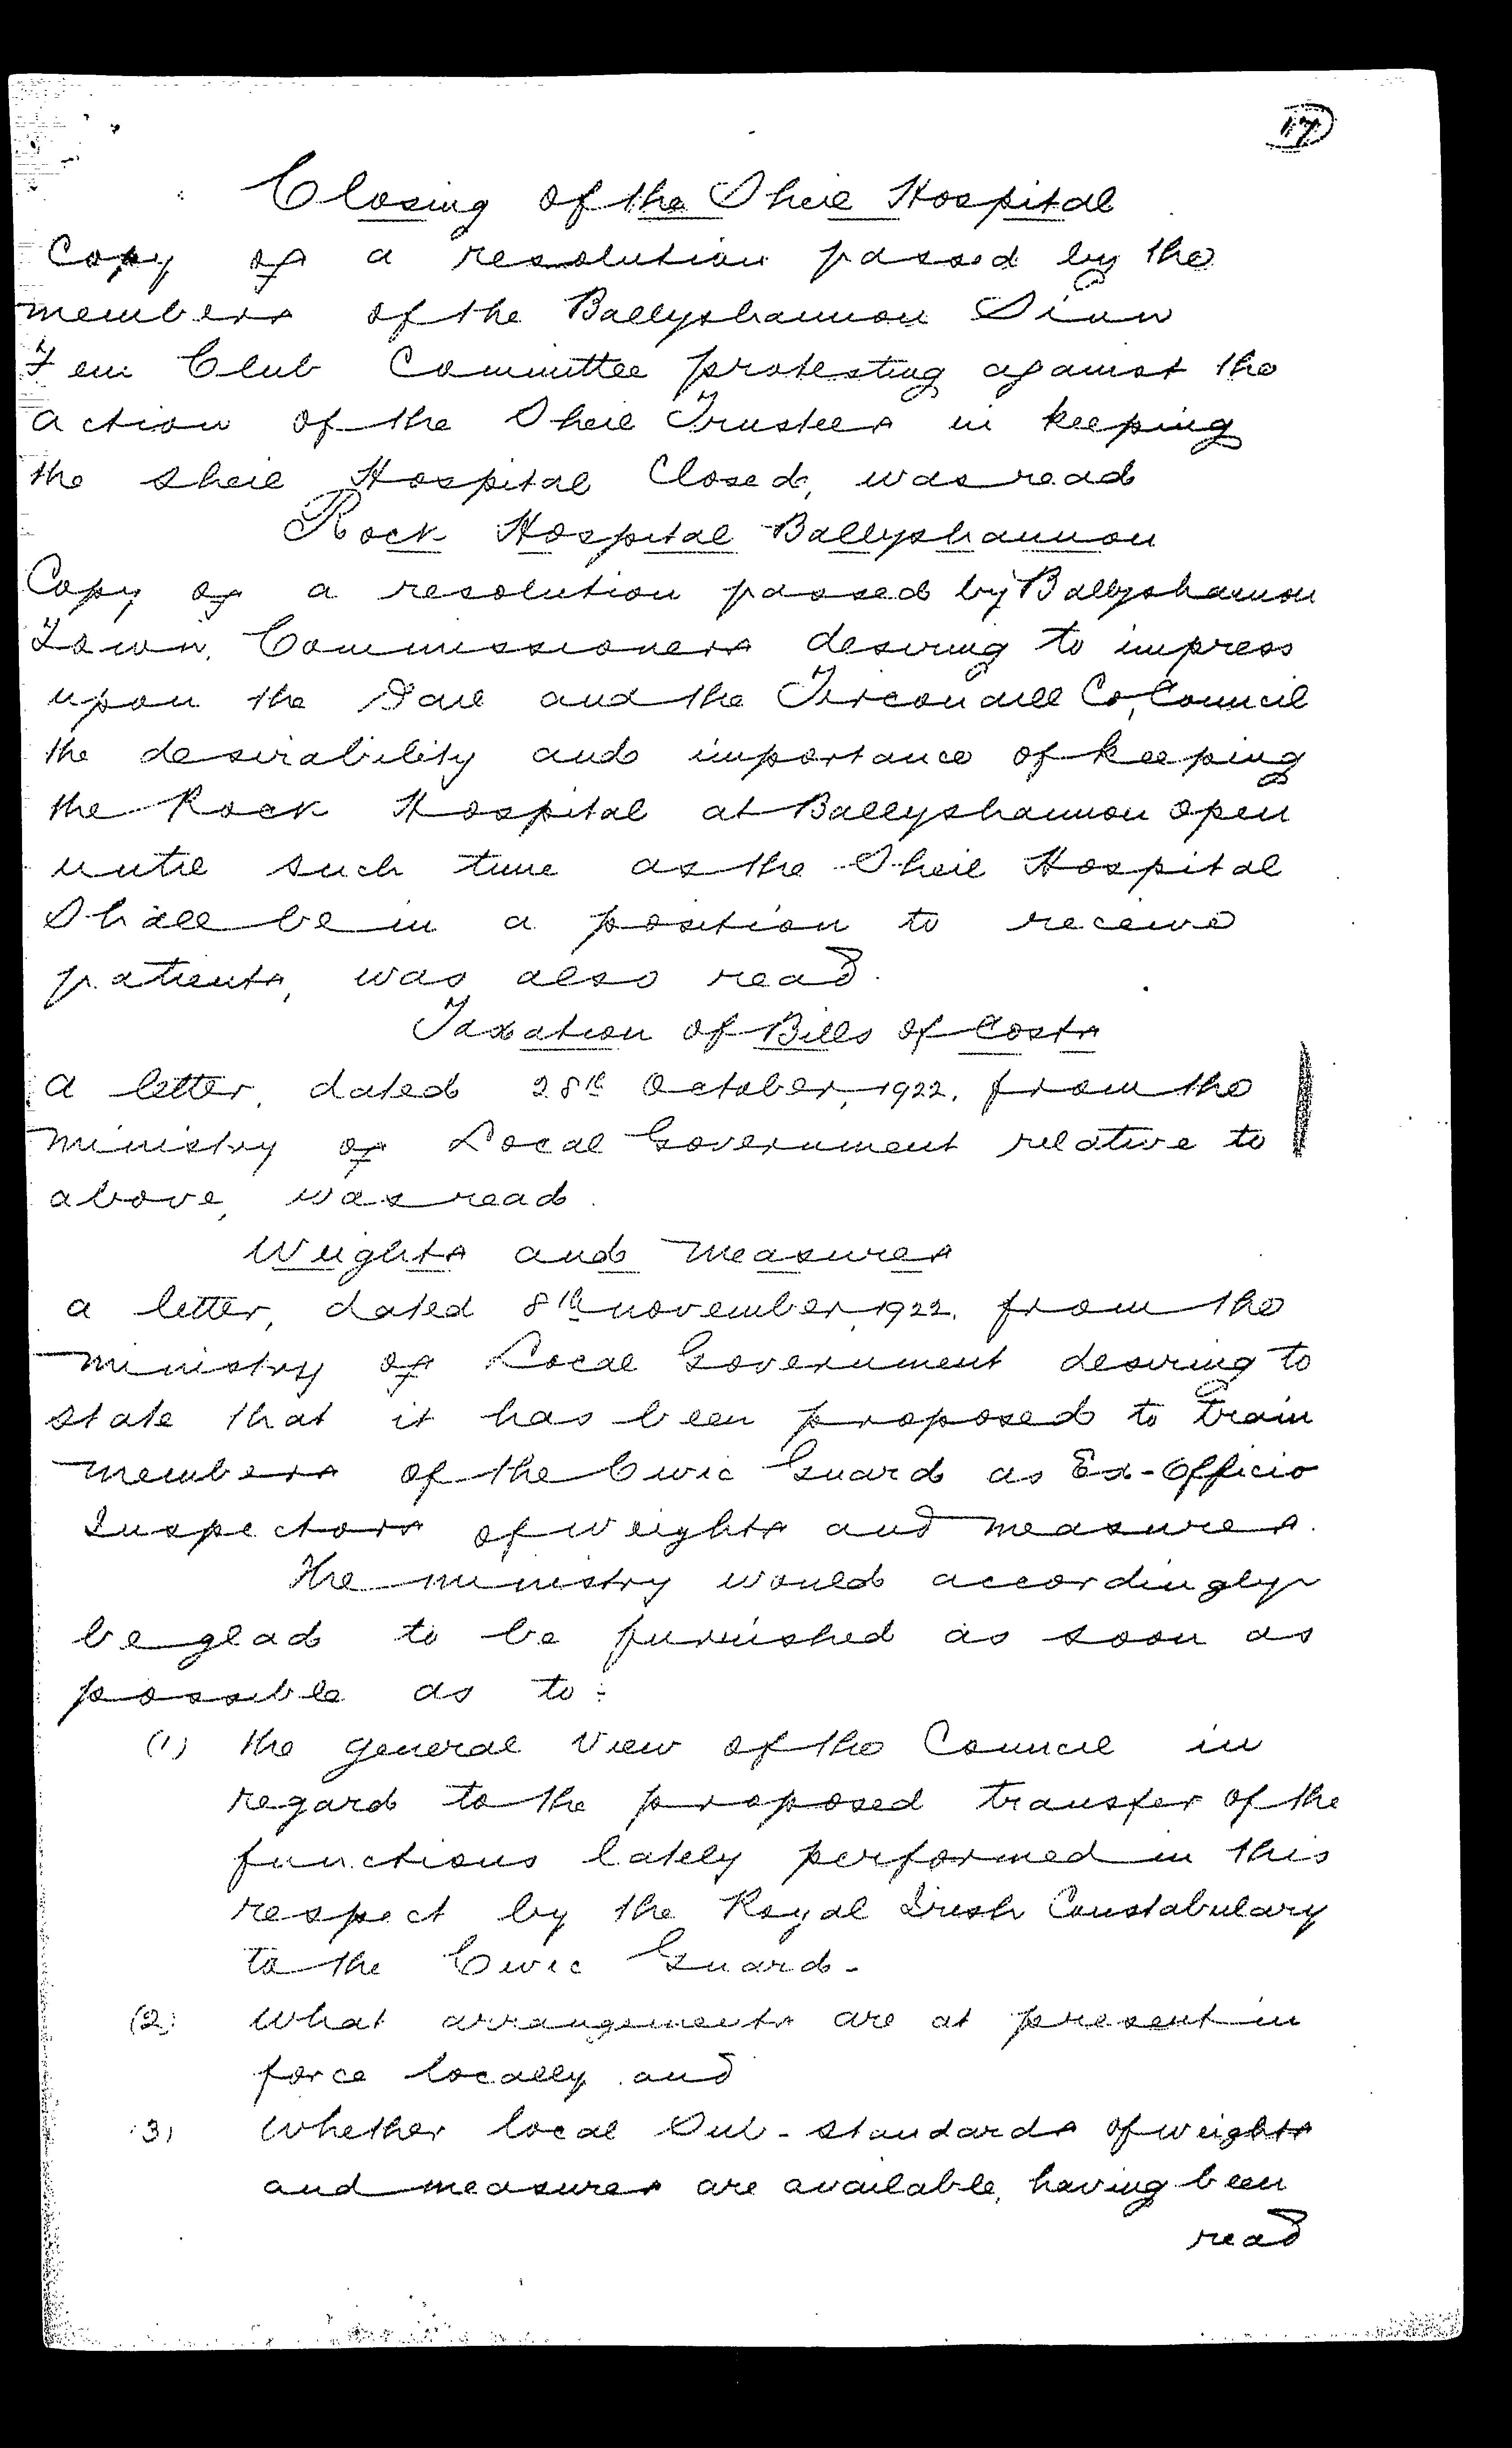 17
Closing of the Sheil Hospital
Copy of a resolution passed by the
members of the Ballyshannon Sinn
Fein Club Committee protesting against the
action of the Sheil Trustees in keeping
the Sheil Hospital Closed, was read
Rock Hospital Ballyshannon
Copy of a resolution passed by Ballyshannon
Town Commissioners desiring to impress
upon the Dail and the Tirconaill Co, Council
the desirability and importance of keeping
the Rock Hospital at Ballyshannon open
until such time as the Sheil Hospital
Shall be in a position to receive
patients, was also read.
Taxation of Bills of Costs
a letter, dated 28th October, 1922, from the
Ministry of Local Government relative to
above, was read.
Weights and Measures
a letter, dated 8th November, 1922, from the
Ministry of Local Government desiring to
state that it has been proposed to train
members of the Civic Guard as Ex-Officio
Inspectors of Weights and Measures.
The Ministry would accordingly
be glad to be furnished as soon as
possible as to:
(1) the general view of the Council in
regard to the proposed transfer of the
functions lately performed in this
respect by the Royal Irish Constabulary
to the Civic Guard-
(2) What arrangements are at present in
force locally and
(3) Whether local Sub-standards of weights
and measures are available, having been
read